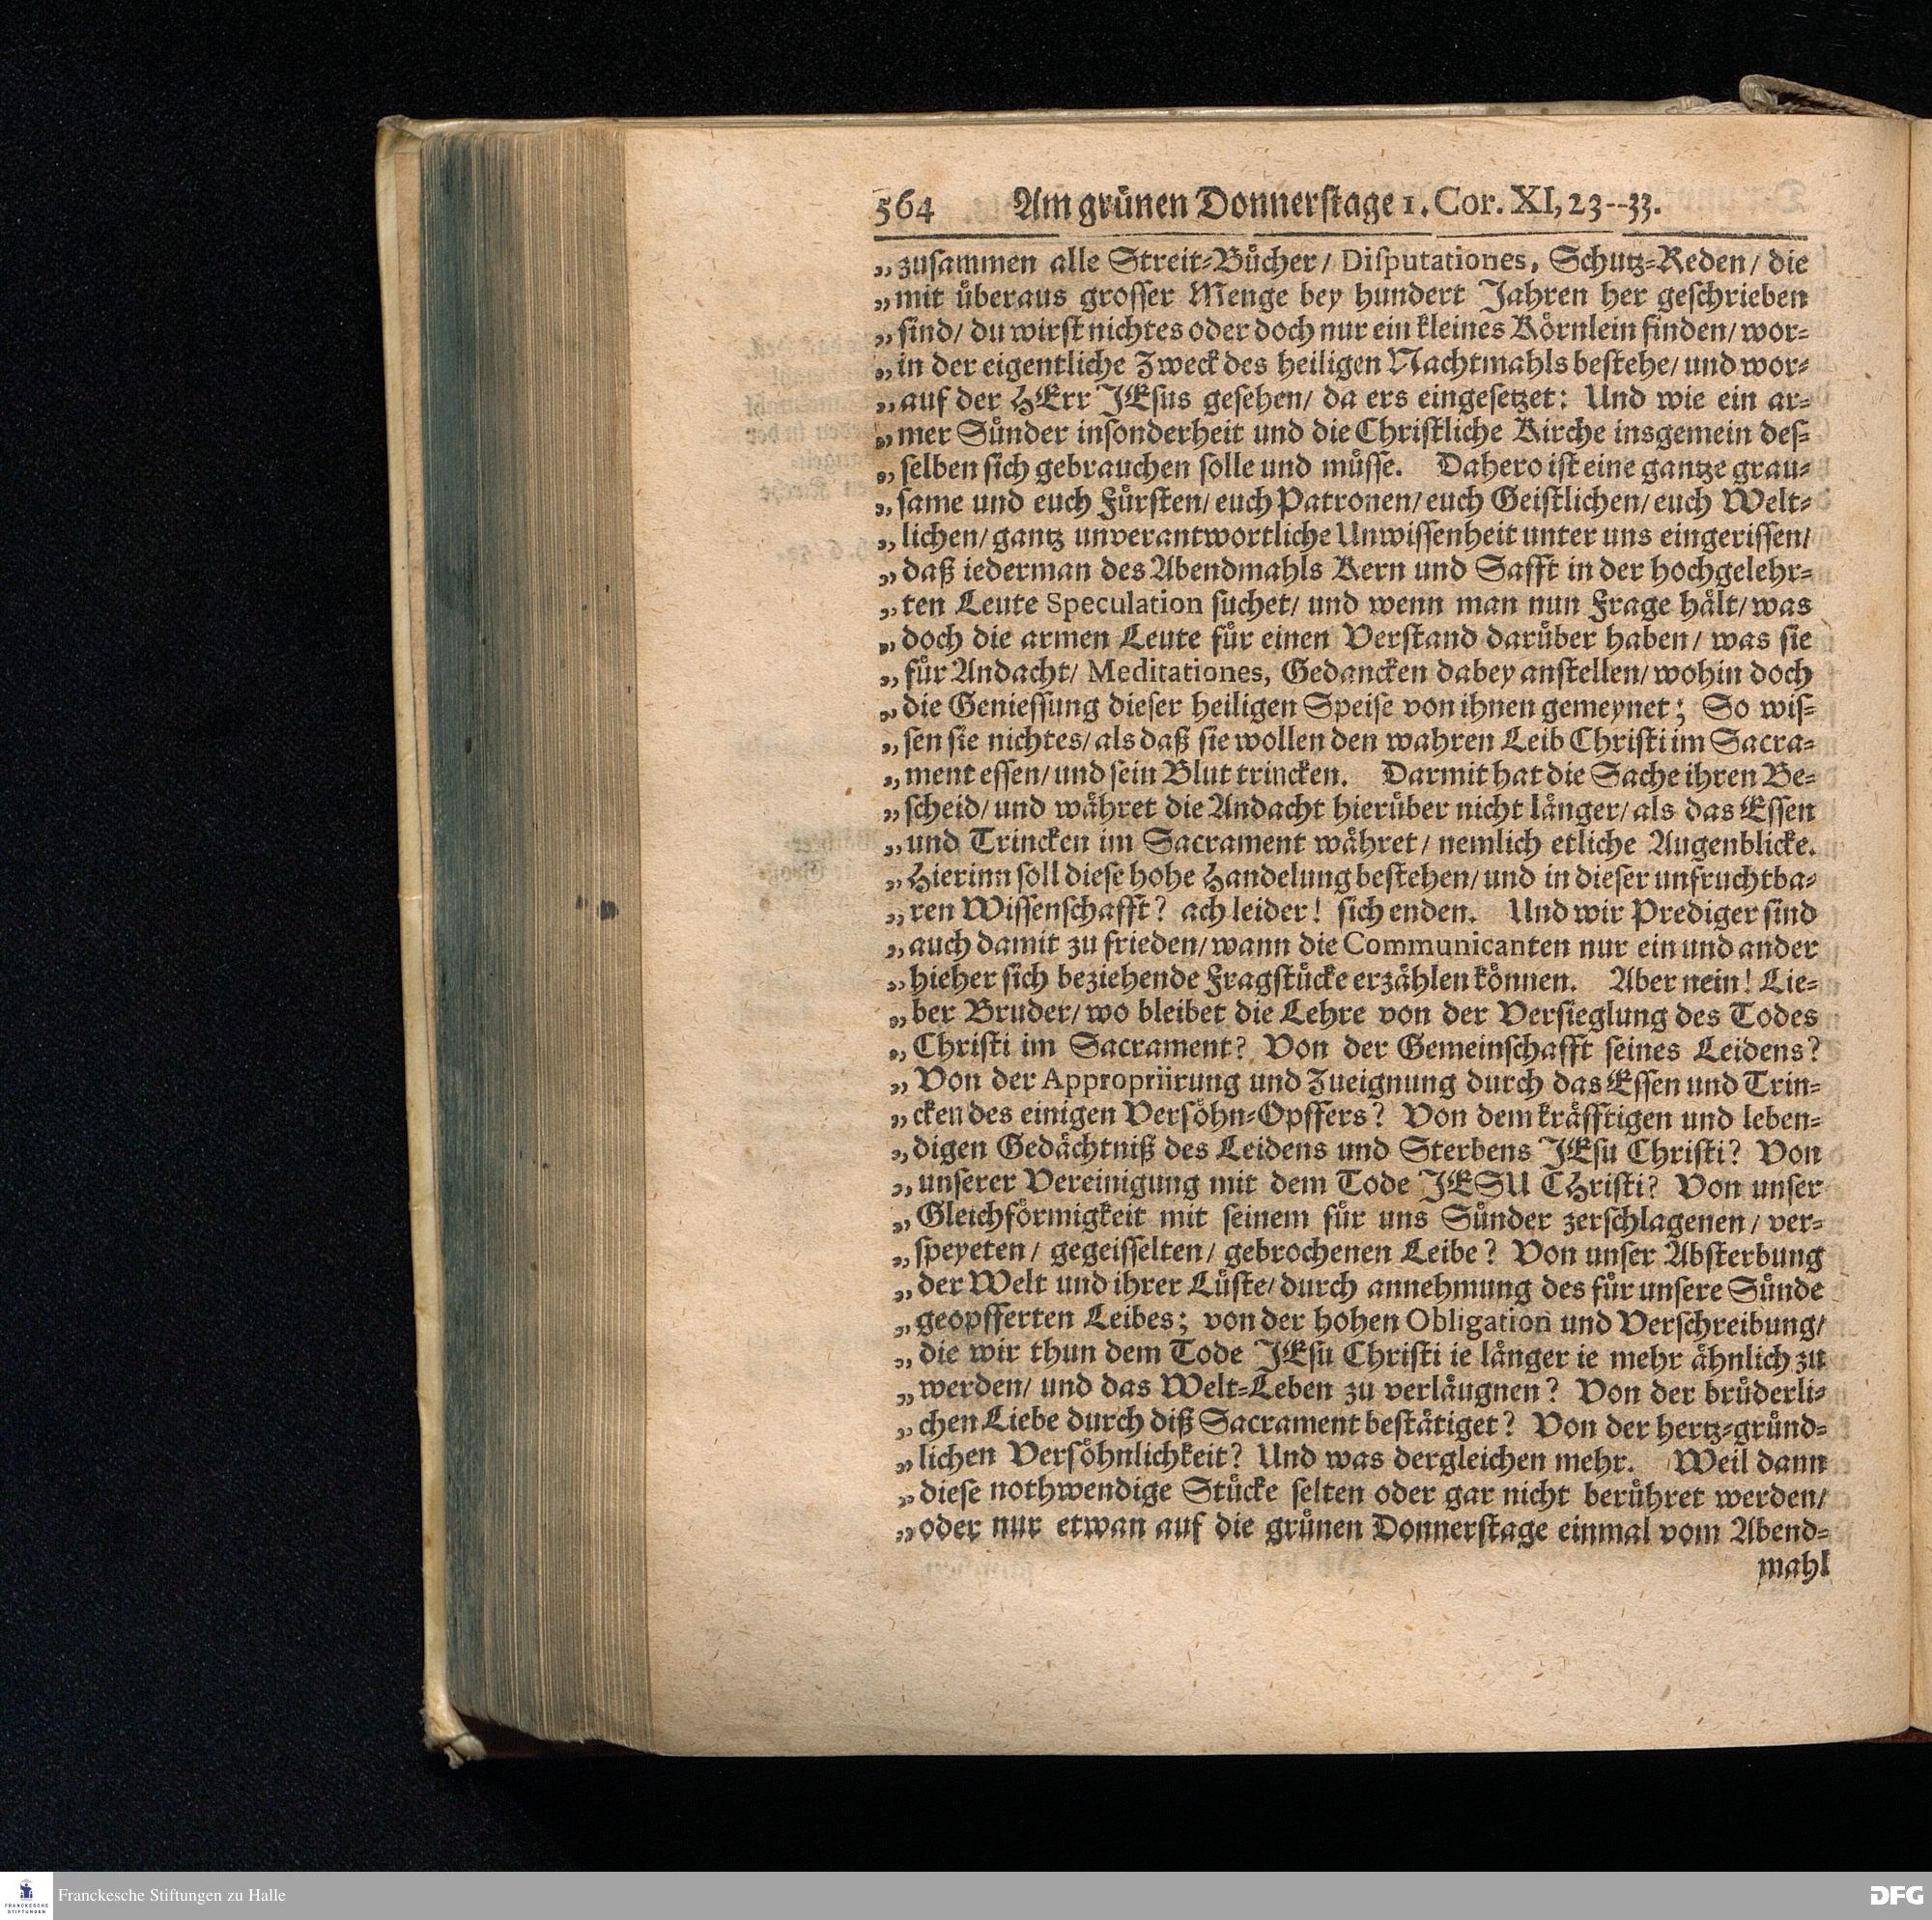 564 Am grünen Donnerſtage 1. Cor. XI, 23--33.
„zuſammen alle Streit-Bücher/ Diſputationes, Schutz-Reden/ die
„mit überaus groſſer Menge bey hundert Jahren her geſchrieben
„ſind/ du wirſt nichtes oder doch nur ein kleines Körnlein finden/ wor-
„in der eigentliche Zweck des heiligen Nachtmahls beſtehe/ und wor-
„auf der HErr JEſus geſehen/ da ers eingeſetzet: Und wie ein ar-
„mer Sünder inſonderheit und die Chriſtliche Kirche insgemein deſ-
„ſelben ſich gebrauchen ſolle und müſſe. Dahero iſt eine gantze grau-
„ſame und euch Fürſten/ euch Patronen/ euch Geiſtlichen/ euch Welt-
„lichen/ gantz unverantwortliche Unwiſſenheit unter uns eingeriſſen/
„daß iederman des Abendmahls Kern und Safft in der hochgelehr-
„ten Leute Speculation ſuchet/ und wenn man nun Frage hält/ was
„doch die armen Leute für einen Verſtand darüber haben/ was ſie
„für Andacht/ Meditationes, Gedancken dabey anſtellen/ wohin doch
„die Genieſſung dieſer heiligen Speiſe von ihnen gemeynet; So wiſ-
„ſen ſie nichtes/ als daß ſie wollen den wahren Leib Chriſti im Sacra-
„ment eſſen/ und ſein Blut trincken. Darmit hat die Sache ihren Be-
„ſcheid/ und währet die Andacht hierüber nicht länger/ als das Eſſen
„und Trincken im Sacrament währet/ nemlich etliche Augenblicke.
„Hierinn ſoll dieſe hohe Handelung beſtehen/ und in dieſer unfruchtba-
„ren Wiſſenſchafft? ach leider! ſich enden. Und wir Prediger ſind
„auch damit zu frieden/ wann die Communicanten nur ein und ander
„hieher ſich beziehende Fragſtücke erzählen können. Aber nein! Lie-
„ber Bruder/ wo bleibet die Lehre von der Verſieglung des Todes
„Chriſti im Sacrament? Von der Gemeinſchafft ſeines Leidens?
„Von der Appropriirung und Zueignung durch das Eſſen und Trin-
„cken des einigen Verſöhn-Opffers? Von dem kräfftigen und leben-
„digen Gedächtniß des Leidens und Sterbens JEſu Chriſti? Von
„unſerer Vereinigung mit dem Tode JESU CHriſti? Von unſer
„Gleichförmigkeit mit ſeinem für uns Sünder zerſchlagenen/ ver-
„ſpeyeten/ gegeiſſelten/ gebrochenen Leibe? Von unſer Abſterbung
„der Welt und ihrer Lüſte/ durch annehmung des für unſere Sünde
„geopfferten Leibes; von der hohen Obligation und Verſchreibung/
„die wir thun dem Tode JEſu Chriſti ie länger ie mehr ähnlich zu
„werden/ und das Welt-Leben zu verläugnen? Von der brüderli-
„chen Liebe durch diß Sacrament beſtätiget? Von der hertz-gründ-
„lichen Verſöhnlichkeit? Und was dergleichen mehr. Weil dann
„dieſe nothwendige Stücke ſelten oder gar nicht berühret werden/
„oder nur etwan auf die grünen Donnerſtage einmal vom Abend-
mahl
Franckesche Stiftungen zu Halle
FRANCKESCHE STIFTUNGEN
DFG